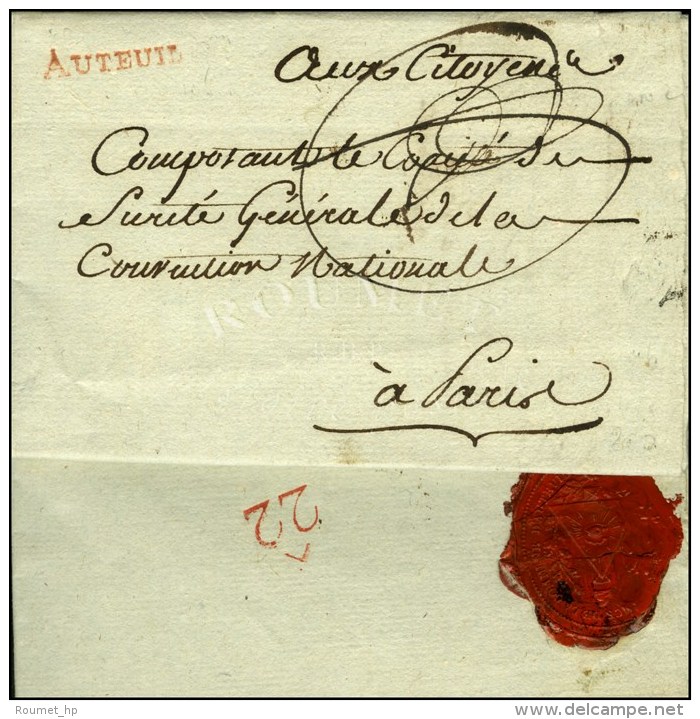 AUTEUIL
Aux Citoyens
Composant le Comité de
Sureté Générale de la
Convention Nationale
ROUMET
à Paris
22
Roumet_hp
delcampe.net